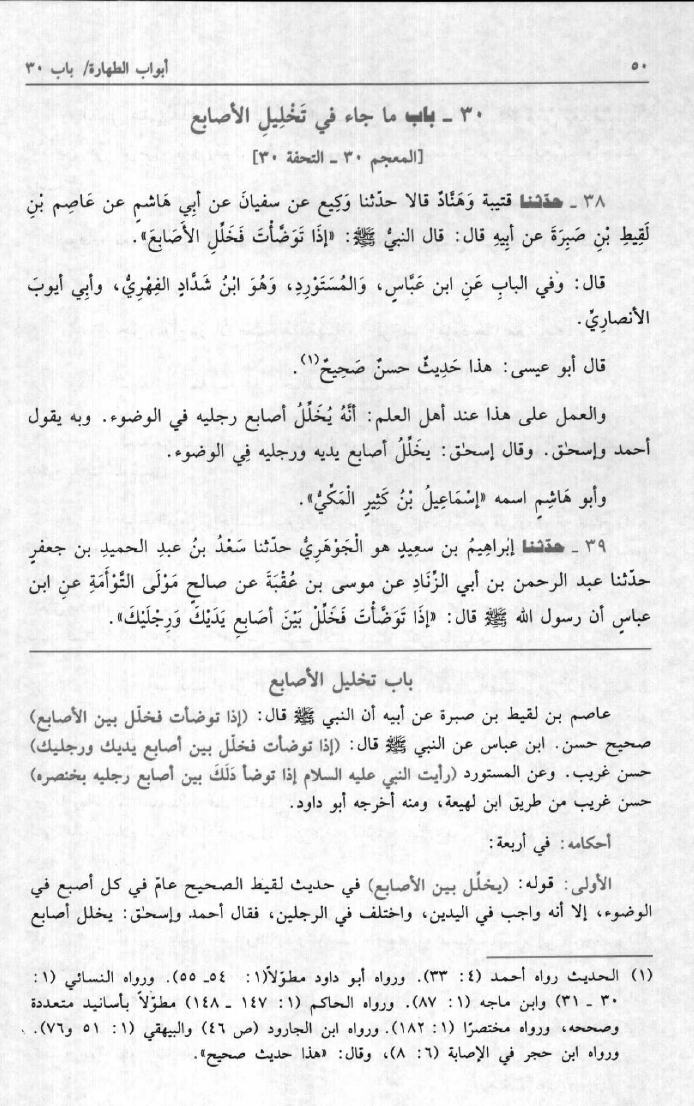 ٥٠
أبواب الطهارة/ باب ٣٠
٣٠ ـ باب ما جاء في تَخْلِيلِ الأصابع
[المعجم ٣٠ ـ التحفة ٣٠]
٣٨ ـ حدّثنا قتيبة وَهَنَّادٌ قالا حدّثنا وَكِيع عن سفيانَ عن أبِي هَاشمٍ عن عَاصِم بْنِ
لَقِيطِ بْنِ صَبِرَةَ عن أبِيهِ قال: قال النبيُّ ﷺ: «إذَا تَوَضَّأْتَ فَخَلِّلِ الأَصَابِعَ».
قال: وَفي البابِ عَنِ ابن عَبَّاسٍ، وَالمُسْتَوْرِدِ، وَهُوَ ابْنُ شَدَّادٍ الفِهْرِيُّ، وأبِي أيوبَ
الأنصارِيِّ.
قال أبو عيسى: هذا حَدِيثٌ حسنٌ صَحِيحٌ(١).
والعمل على هذا عند أهل العلم: أنَّهُ يُخَلِّلُ أصابع رجليه في الوضوء. وبه يقول
أحمد وإسحـٰق. وقال إسحـٰق: يخَلِّلُ أصابع يديه ورجليه فِي الوضوء.
وأبو هَاشِمٍ اسمه «إسْمَاعِيلُ بْنُ كَثِيرٍ الْمَكِّيُّ».
٣٩ ـ حدّثنا إبراهِيمُ بن سعِيدٍ هو الْجَوْهَرِيُّ حدّثنا سَعْدُ بنُ عبدِ الحميدِ بن جعفرٍ
حدّثنا عبد الرحمن بن أبي الزِّنَادِ عن موسى بن عُقْبَةَ عن صالحٍ مَوْلَى التَّوْأَمَةِ عنِ ابن
عباسٍ أن رسول الله ﷺ قال: «إذَا تَوَضَّأْتَ فَخَلِّلْ بَيْنَ أصَابِعِ يَدَيْكَ وَرِجْلَيْكَ».
باب تخليل الأصابع
عاصم بن لقيط بن صبرة عن أبيه أن النبي ﷺ قال: (إذا توضأت فخلّل بين الأصابع)
صحيح حسن. ابن عباس عن النبي ﷺ قال: (إذا توضأت فخلّل بين أصابع يديك ورجليك)
حسن غريب. وعن المستورد (رأيت النبي عليه السلام إذا توضأ دَلَكَ بين أصابع رجليه بخنصره)
حسن غريب من طريق ابن لهيعة، ومنه أخرجه أبو داود.
أحكامه: في أربعة:
الأولى: قوله: (يخلّل بين الأصابع) في حديث لقيط الصحيح عامّ في كل أصبع في
الوضوء، إلا أنه واجب في اليدين، واختلف في الرجلين، فقال أحمد وإسحـٰق: يخلل أصابع
(١) الحديث رواه أحمد (٤: ٣٣). ورواه أبو داود مطوّلاً(١: ٥٤ـ ٥٥). ورواه النسائي (١:
٣٠ ـ ٣١) وابن ماجه (١: ٨٧). ورواه الحاكم (١: ١٤٧ ـ ١٤٨) مطوّلاً بأسانيد متعددة
وصححه، ورواه مختصرًا (١: ١٨٢). ورواه ابن الجارود (ص ٤٦) والبيهقي (١: ٥١ و٧٦).
ورواه ابن حجر في الإصابة (٦: ٨)، وقال: «هذا حديث صحيح».